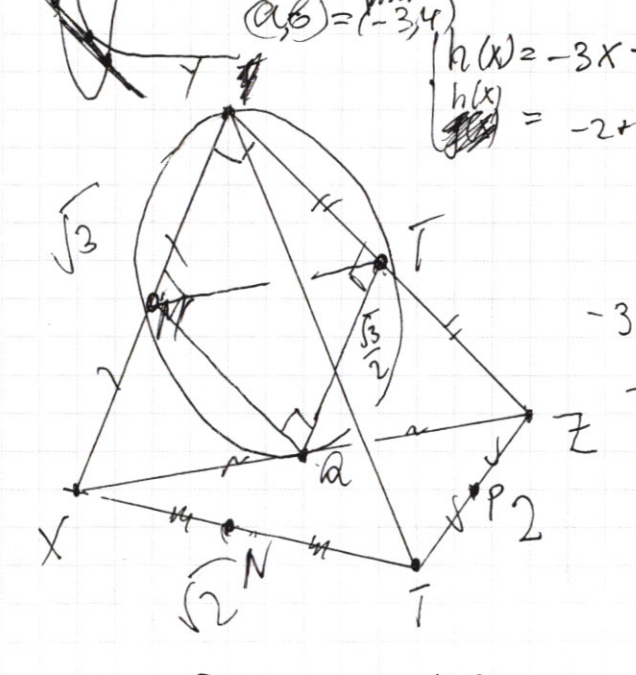 (a,b)=(-3,4)
h(x)=-3x
h(x)
= -2+
Y
√3
T
√3/2
-3
Z
Q
X
P
2
N
√2
T